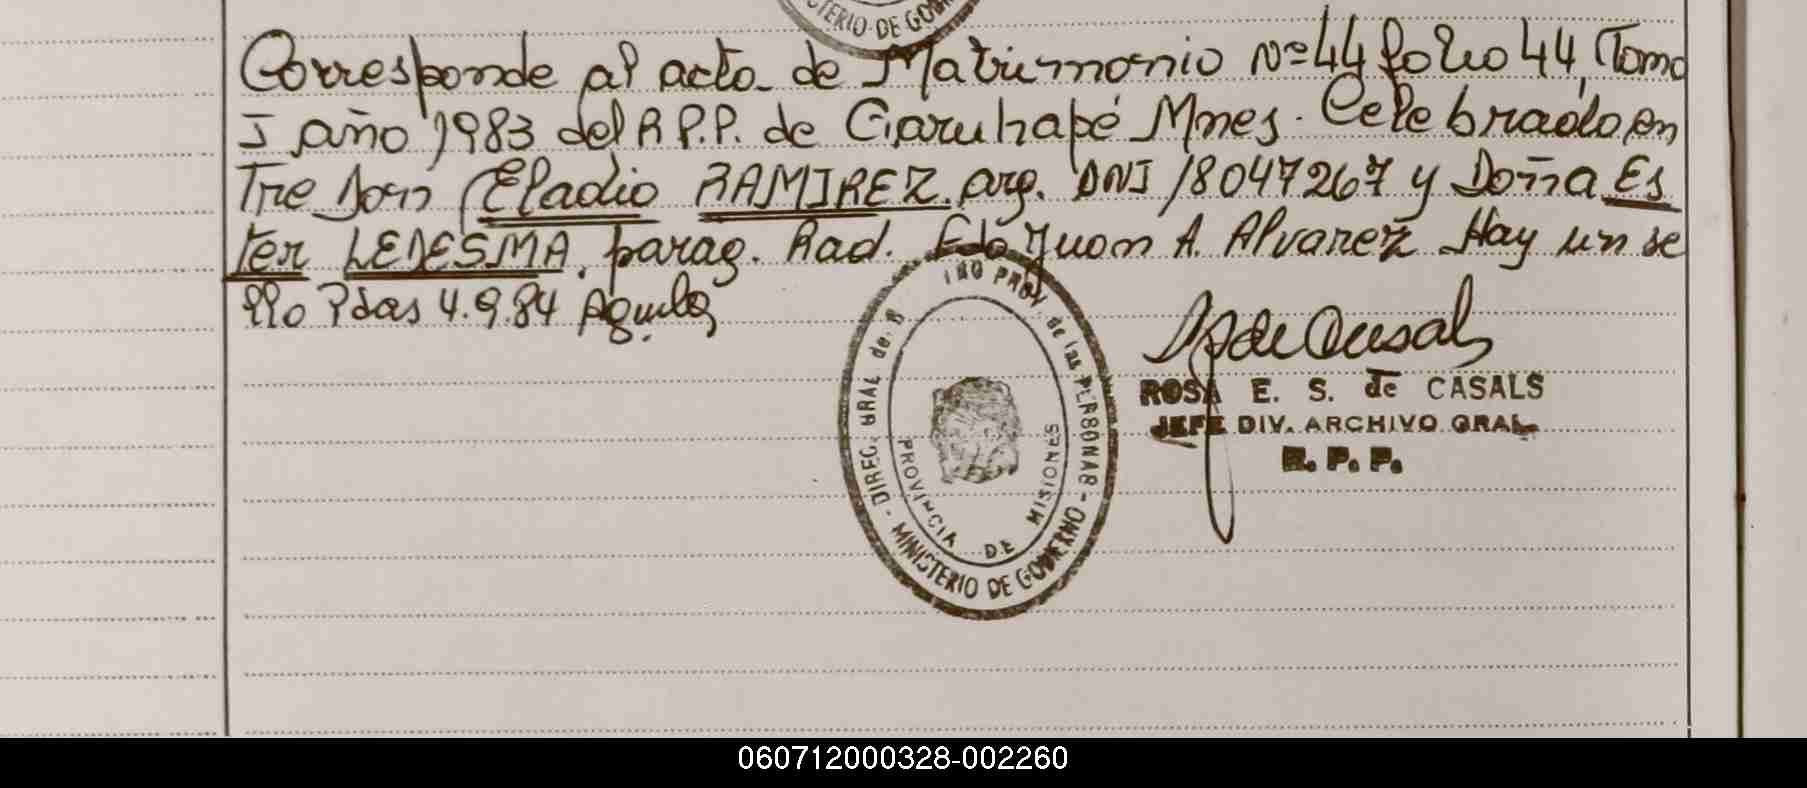 STERIO DE GOB
Corresponde al acta de Matrimonio Nº 44 folio 44, Tomo
I año 1983 del R P.P. de Garuhapé Mnes. Celebrado en
Tre Don Eladio RAMIREZ. arg. DNI 18047267 y Doña Es
ter LEDESMA. parag. Rad. Fdo Juan A. Alvarez Hay un se
llo Pdas 4.9.84 Aguila
DIREC. GRAL de R INO PROV. de las PERSONAS - MINISTERIO DE GOBIERNO -
PROVINCIA DE MISIONES
S de Casals
ROSA E. S. de CASALS
JEFE DIV. ARCHIVO GRAL
R. P. P.
060712000328-002260